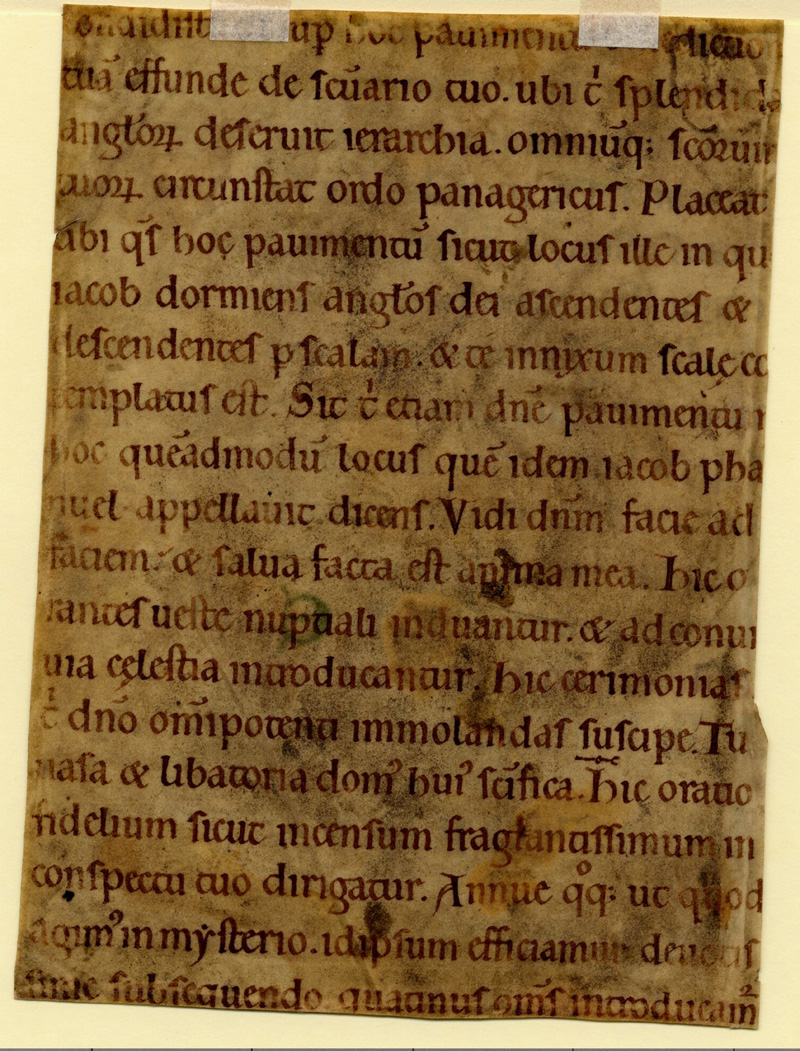 sup hoc pauimentu
tuā effunde de scūario tuo. ubi ť splendida
angłoꝝ deseruit ierarchia. omniūq; scōrū
tuoꝝ circunstat ordo panagericus. Placeat
tibi q̄s hoc pauimentū sicut locus ille in qu
iacob dormiens angłos dei ascendentes &
descendentes p scalam. & te innixum scalę co
templatus est. Sic ť etiam dn̄e pauimentū
hoc quēadmodū locus quē idem iacob pha
nuel appellauit dicens. Vidi dnm̄ facie ad
faciem. & salua facta est anima mea. Hic o
rantes ueste nuptiali induantur. & ad conui
uia cęlestia introducantur. Hic cerimonias
ť dn̄o om̄ipotenti immolandas suscipe. Tu
uasa & libatoria domꝰ huiꝰ scīfica. Hic oratio
fidelium sicut incensum fraglantissimum in
conspectu tuo dirigatur. Annue qͦq; ut quod
agimꝰ in mẏsterio. idipsum efficiamur deuotis
subsequendo quatinus om̄s introducam̄